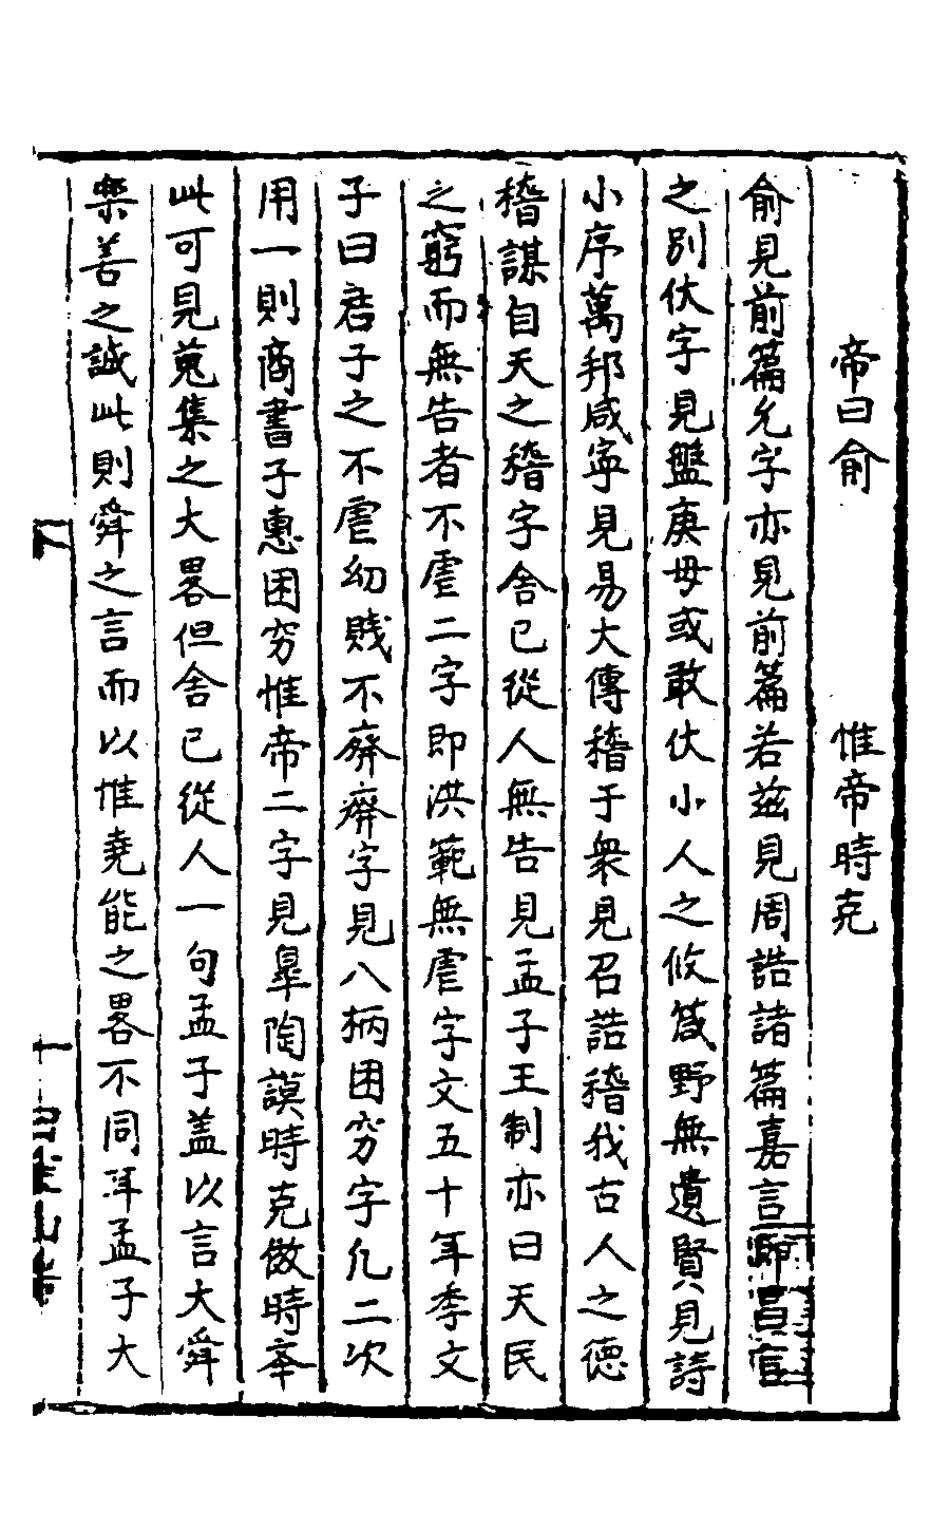 帝曰俞　惟帝時克
俞見前篇允字亦見前篇若茲見周誥諸篇嘉言即昌言
之別伏字見盤庚毋或敢伏小人之攸箴野無遺賢見詩
小序萬邦咸寧見易大傳稽于衆見召誥稽我古人之德
稽謀自天之稽字舍已從人無告見孟子王制亦曰天民
之窮而無告者不虐二字即洪範無虐字文五十年季文
子曰君子之不虐幼賤不癠癠字見八柄困穷字凢二次
用一則商書子惠困穷惟帝二字見臯陶謨時克倣時举
此可見蒐集之大畧但舍已從人一句孟子盖以言大舜
樂善之誠此則舜之言而以惟堯能之畧不同耳孟子大